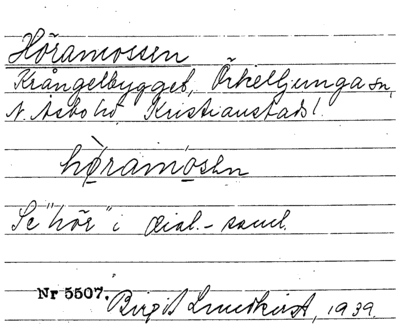 Höramossen
Krångelbygget, Örkelljunga sn,
N. Åsbo hd, Kristianstads l.
hø̀ramósen
Se "hör" i dial.-saml.
Nr 5507. Birgit Lundkvist, 1939.